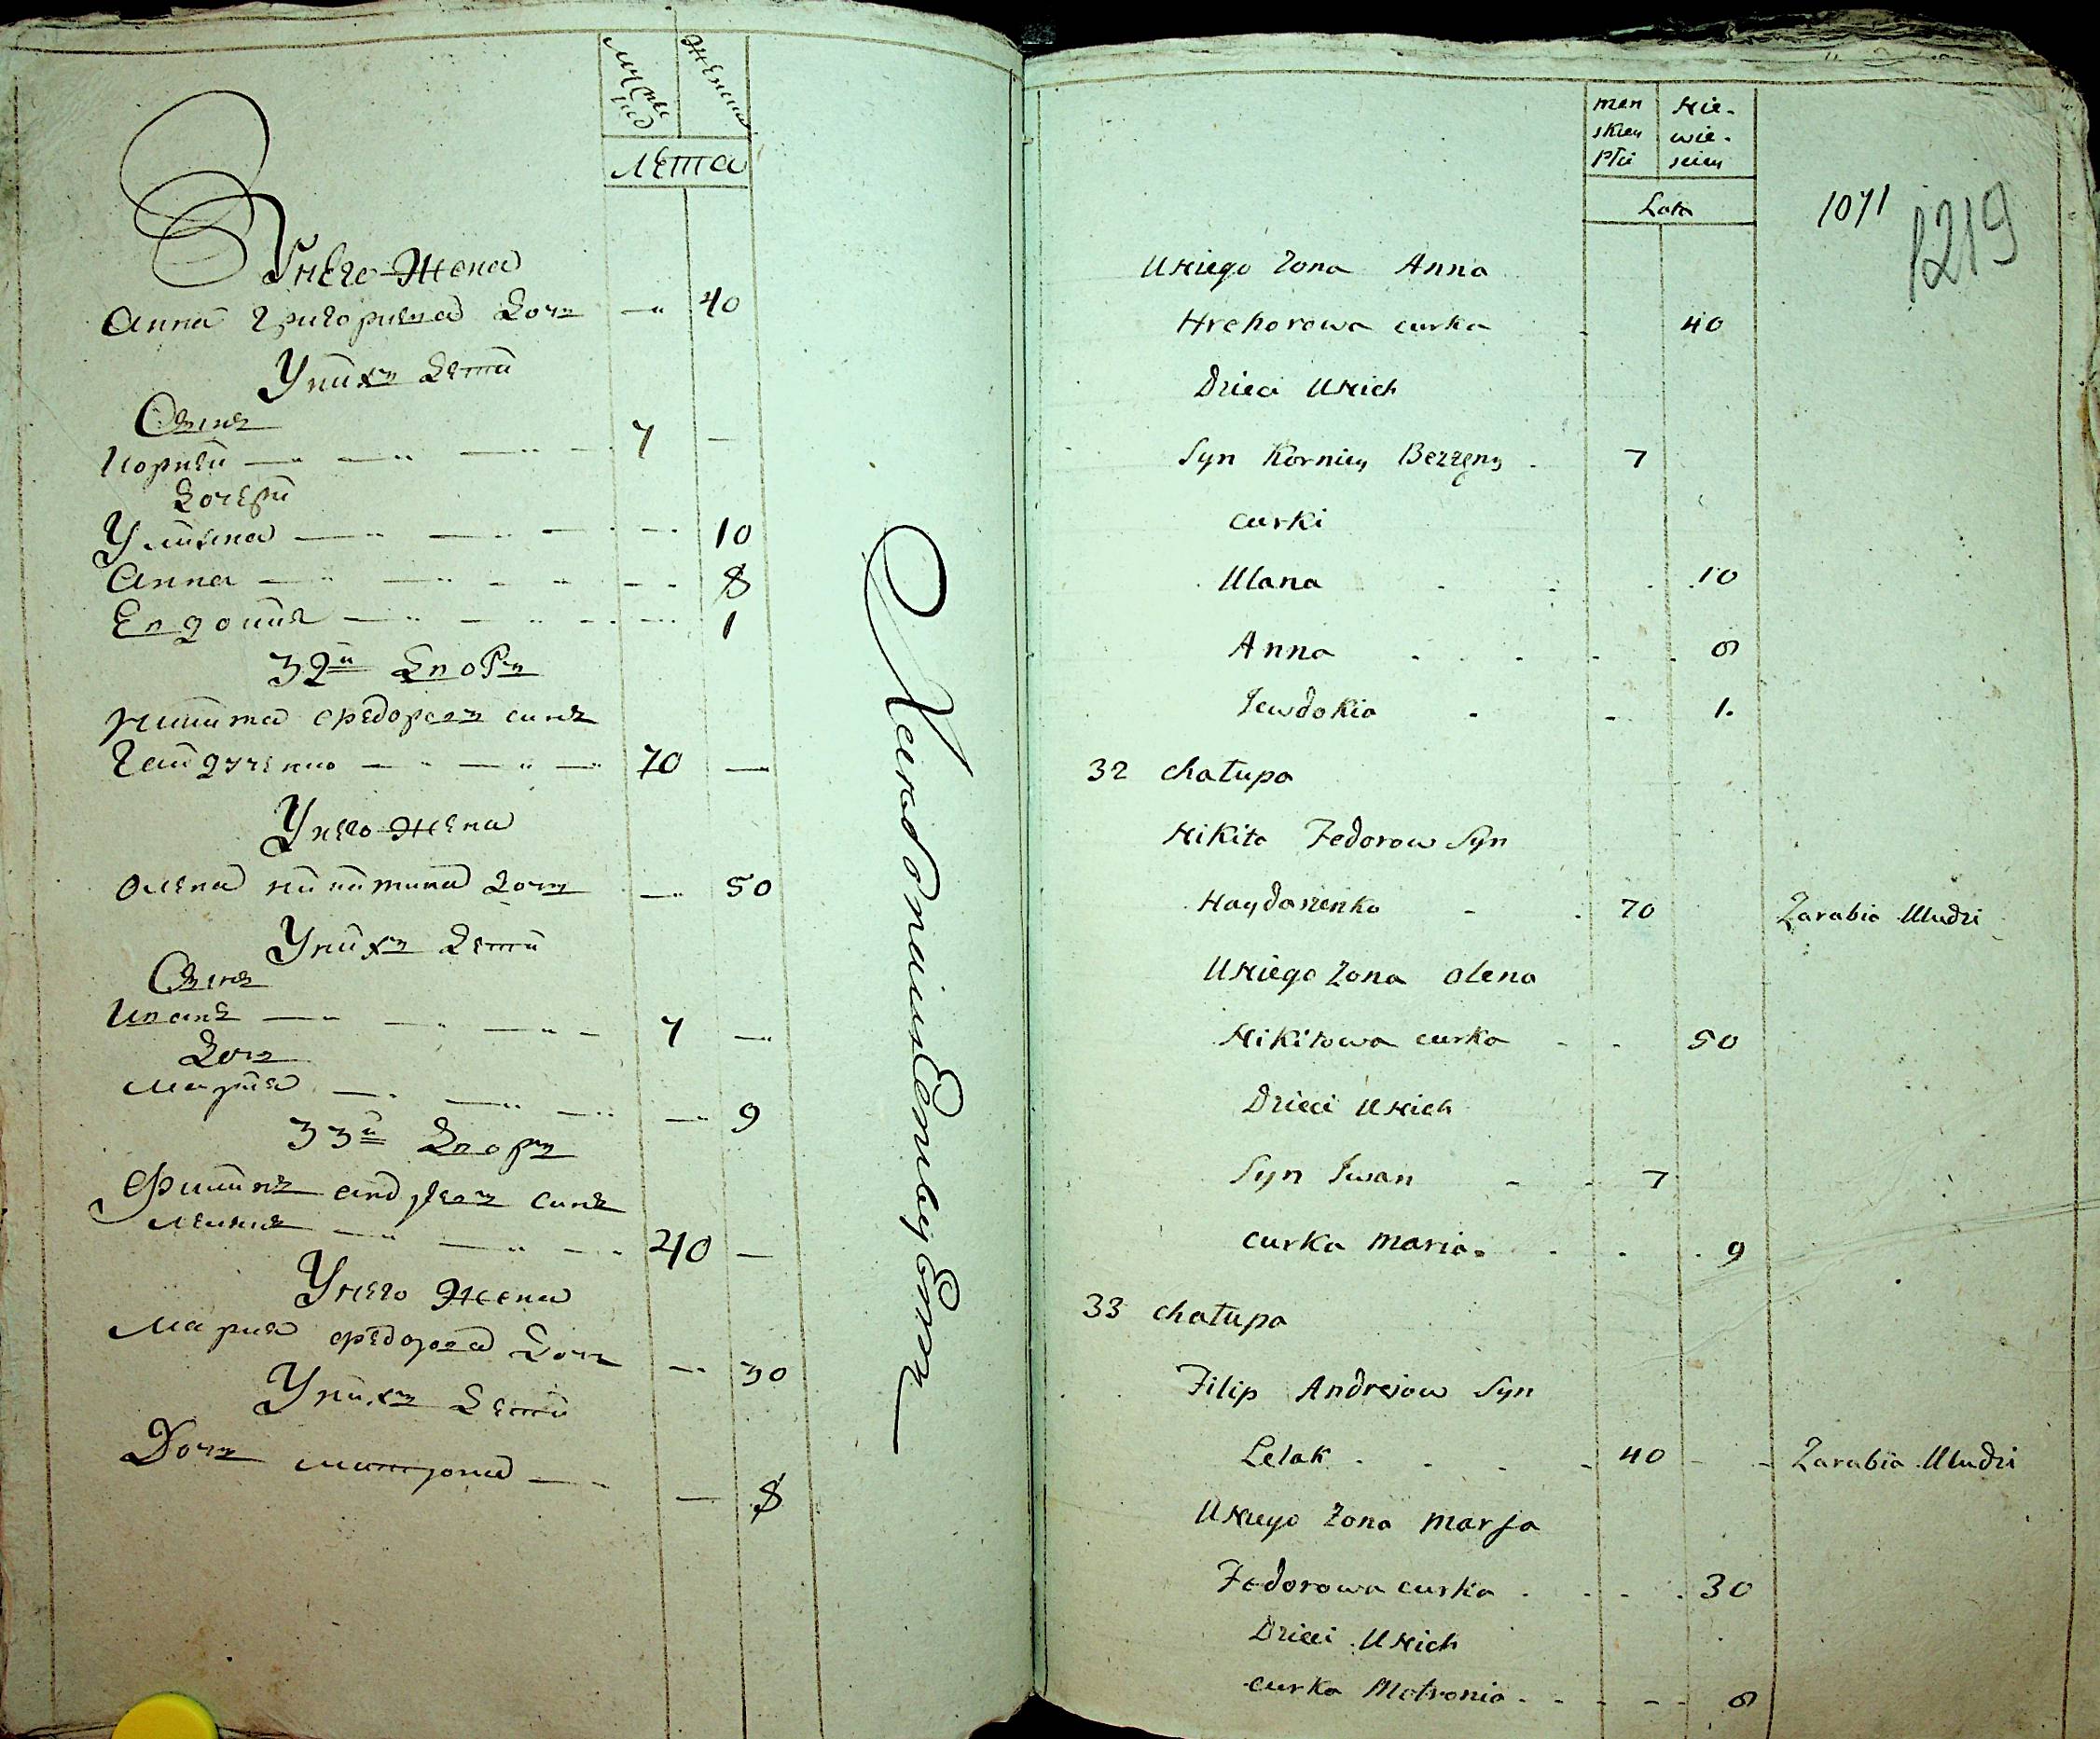 мужеск
женска
лета
У него жена
Анна Григориева дочь — 40
У них дети
Сынъ
Корней — 7 —
дочери
Улияна — 10
Анна — 8
Евдокия — 1
32й дворъ
Никита Федоровъ сынъ
Гайдученко — 70 —
У него жена
Олена Никитина дочь — 50
У них дети
Сынъ
Иванъ — 7 —
дочь
Мария — 9
33й дворъ
Филипъ Андреевъ сынъ
40 —
У него жена
Мария Федорова дочь — 30
У них дети
Дочь Матрона — 8
men
skiey
Płci
Nie-
wie-
sciey
Lata
1071
1219
U Niego Zona Anna
Hrehorowa curka 40
Dzieci U Nich
Syn Korniey 7
curki
Ulana 10
Anna 8
Jewdokia 1.
32 chałupa
Nikita Fedorow Syn
70 Zarabia
U Niego Zona Olena
Nikitowa curka 50
Dzieci U Nich
Syn Iwan 7
curka Maria 9
33 chałupa
Filip Andrejow Syn
Lelak 40 Zarabia
U Niego Zona Marja
Fedorowa curka 30
Dzieci U Nich
curka Motronia 8